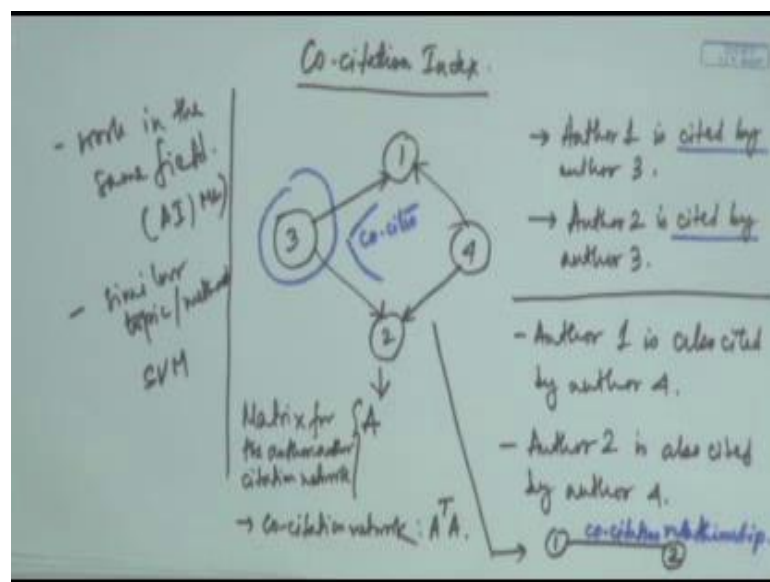 Co-citation Index.
- work in the
same field.
(AI)
- similar
topic/
SVM
1
3
co-cite
4
2
Matrix for { A
the author-author
citation network
→ co-citation network: AᵀA.
→ Author 1 is cited by
author 3.
→ Author 2 is cited by
author 3.
- Author 1 is also cited
by author 4.
- Author 2 is also cited
by author 4.
1 co-citation relationship. 2